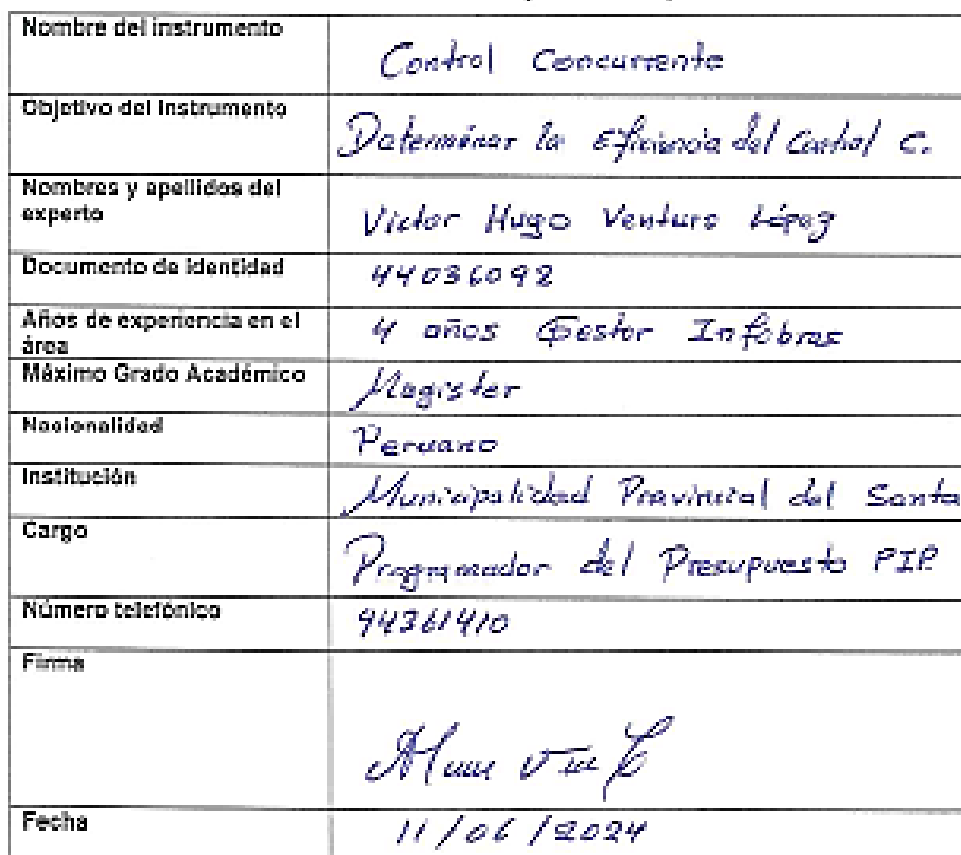 Nombre del instrumento
Control Concurrente
Objetivo del Instrumento
Determinar la Eficiencia del Control C.
Nombres y apellidos del
experto
Victor Hugo Venturo López
Documento de identidad
44036092
Años de experiencia en el
área
4 años Gestor Infobras
Máximo Grado Académico
Magister
Nacionalidad
Peruano
Institución
Municipalidad Provincial del Santa
Cargo
Programador del Presupuesto PIP.
Número telefónico
94361410
Firma
Fecha
11/06/2024